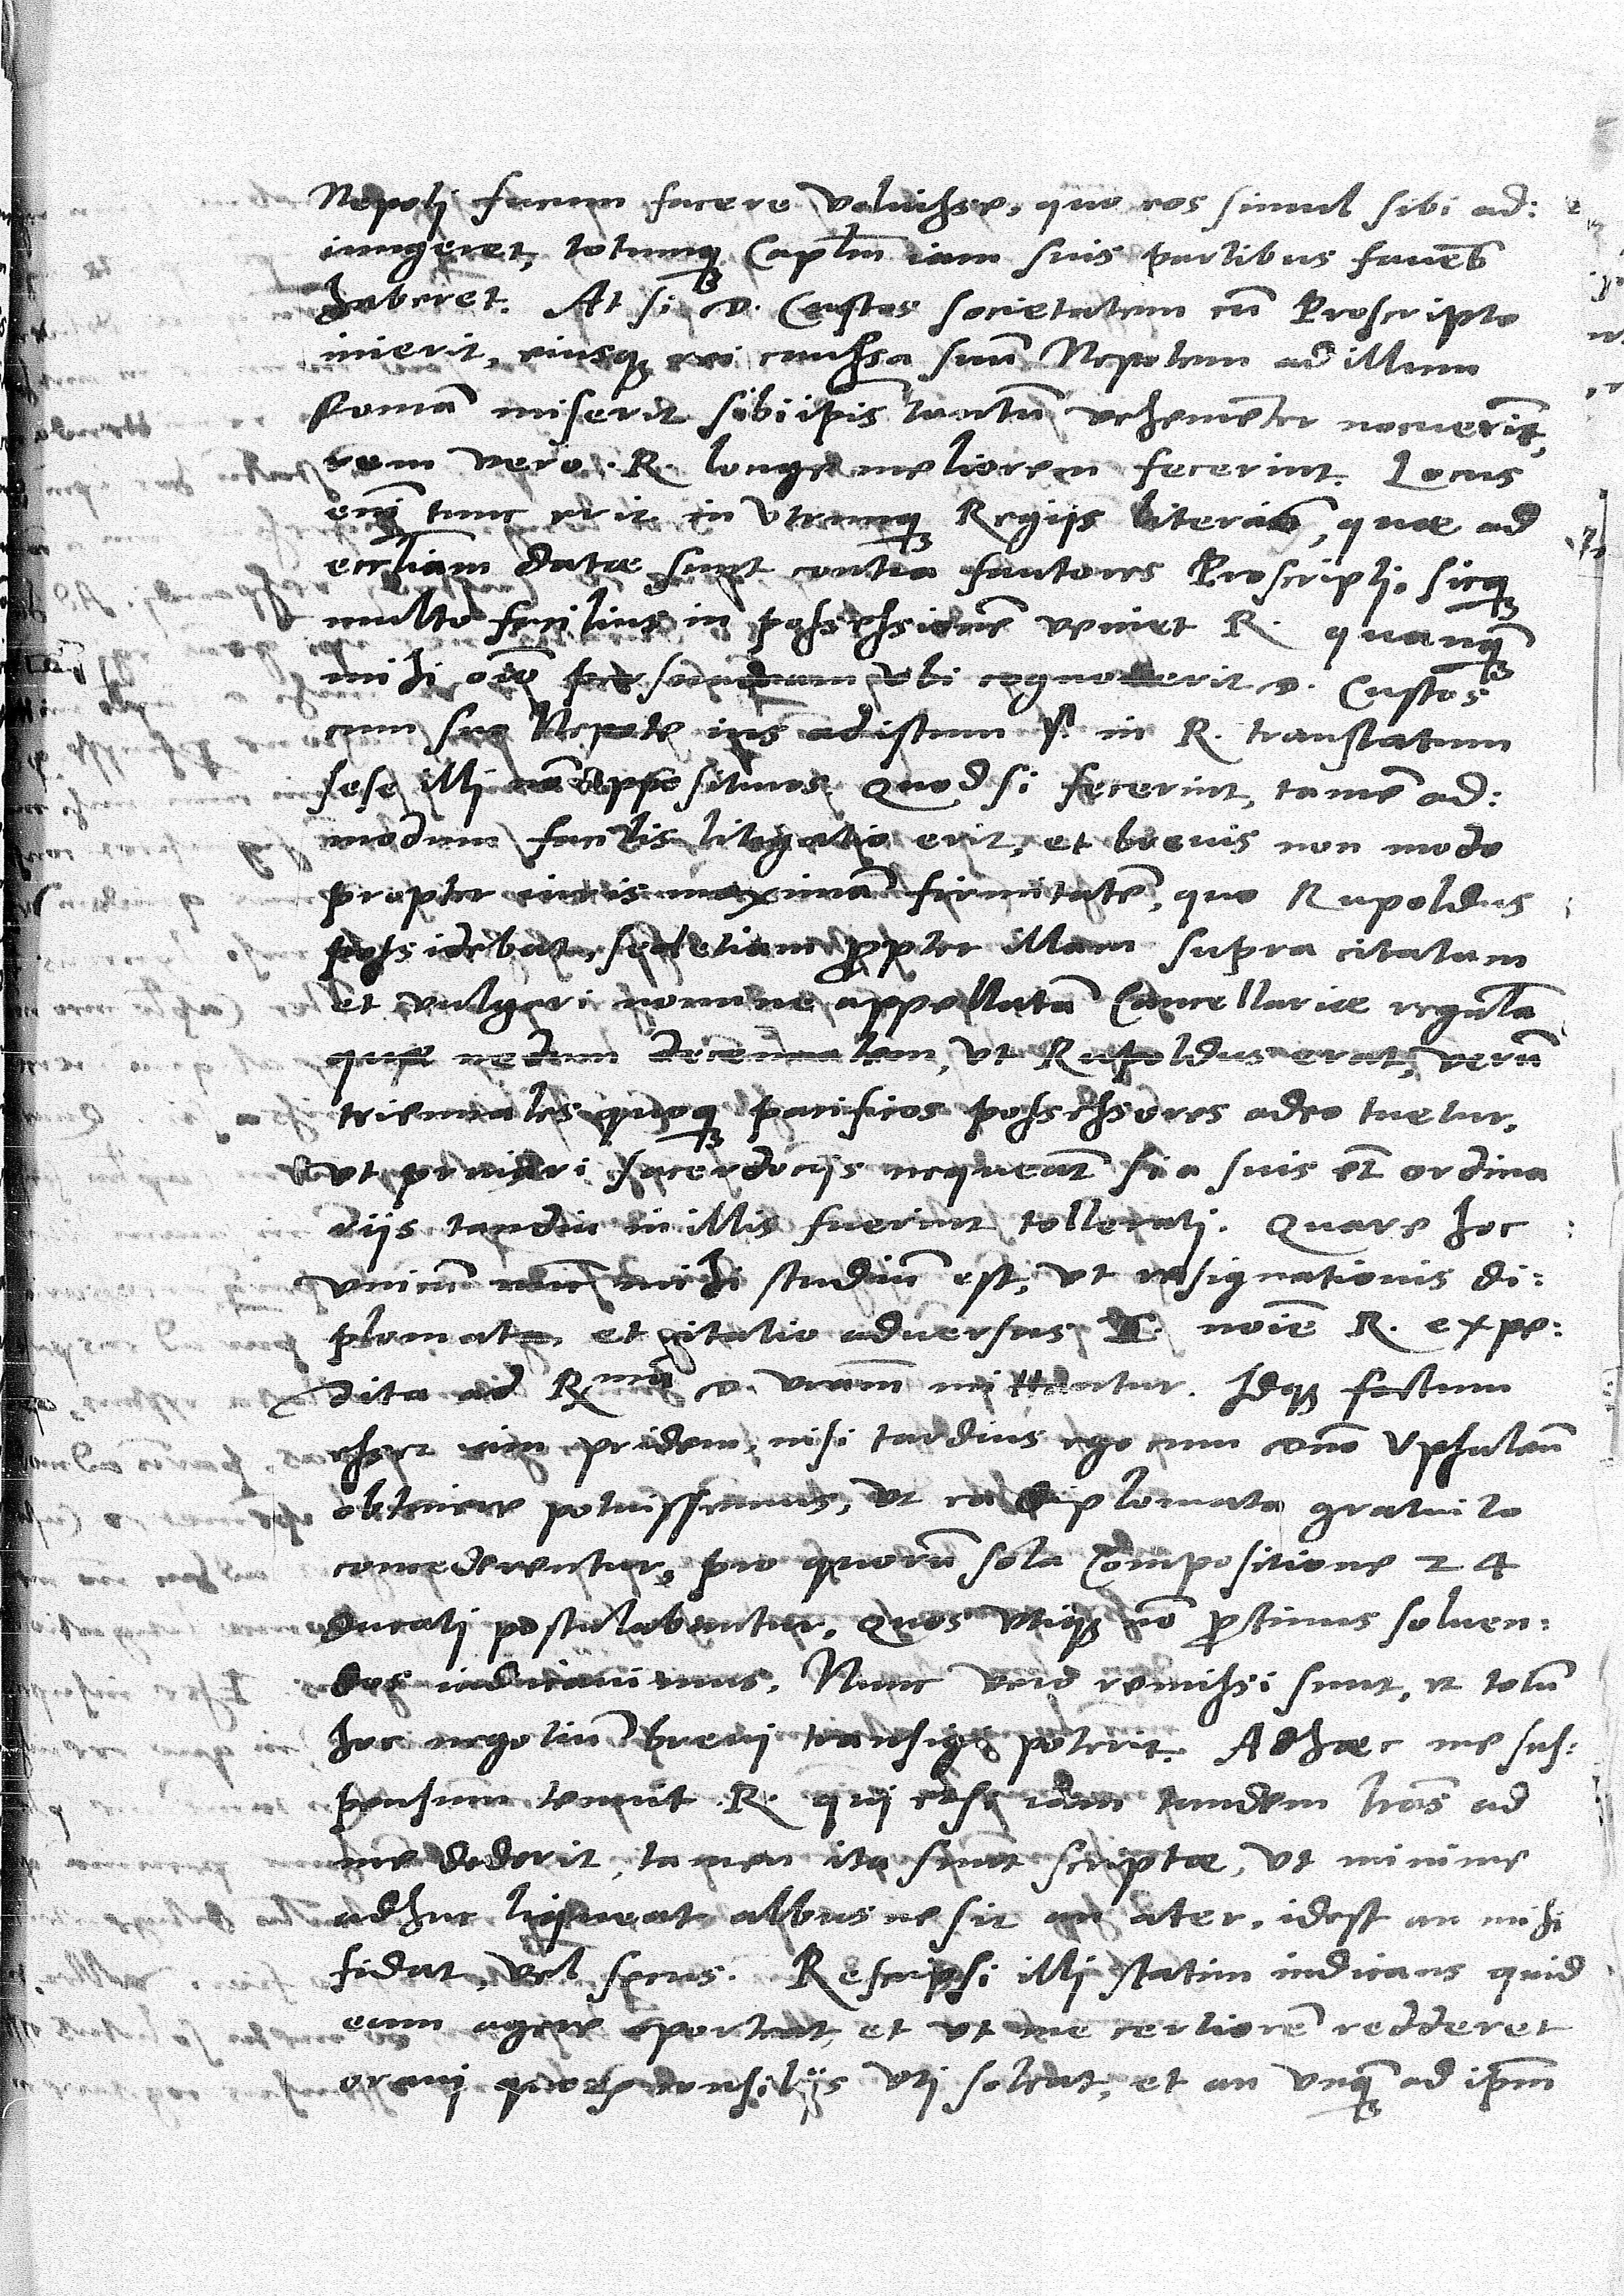 Nepoti fucum facere voluisse, quo eos simul sibi ad:
iungeret, totumq̃ Capl̃m iam suis partibus faueñs
haberet. At si D. Custos societatem cũ Proscripto
inierit, eiusq̃ rei caussa suũ Nepotem ad illum
Romã miserit sibiip̃is tantũ vehemẽter nocuerĩt,
rem vero .R. longe meliorem fecerint. Locus
enĩ tunc erit in vtrumq̃ Regijs literis, quae ad
eccl̃iam datae sunt contra fautores Proscripti. sicq̃
multo facilius in possessionẽ veniet R. quanq̃
mihi oĩo persuadeam vbi cognouerit D. Custos
cum suo Nepote ius ad istum P. in R. translatum
sese illi nõ opposituros. Quod si fecerint, tamẽ ad:
modum facilis litigatio erit, et breuis non modo
propter iuris maximã firmitatẽ, quo Rupoldus
possidebat, sed etiam p̃pter illam supra citatam
et vulgari nomine appellatã Cancellariae regulã
quae nedum decennalem, vt Rupoldus erat, verũ
triennales quoq̃ pacificos possessores adeo tuetur,
vt priuari sacerdocijs nequeant si a suis et̃ ordina
rijs tandiu in illis fuerint tollerati. Quare hoc
vnicũ nũc mihi studiũ est, vt resignationis di:
plomata, et citatio aduersus T. noĩe R. expe:
dita ad R^mã D. vr̃am mittantur. Idq̃ factum
esset iam pridem, nisi tardius ego cum Dno Vphaleũ
obtinere potuissemus, vt ea diplomata gratuito
concederentur, pro quorũ sola Compositione 24
ducati postulabantur. Quos vtiq̃ nõ p̃stinus soluen:
dos iudicauimus. Nunc vero remissi sunt, et totũ
hoc negotiũ breui transigi poterit. Adhaec me sus:
pensum tenuit .R. qui etsi iam tandem lr̃as ad
me dederit, tamen ita sunt scriptae, vt minime
adhuc liqueat albus ne sit an ater, idest an mihi
fidat, vel secus. Rescripsi illi statim indicans quid
eum agere oporteat, et vt me certiorẽ redderet
oraui quorum consilijs vti soleat, et an vnq̃ ad ip̃m